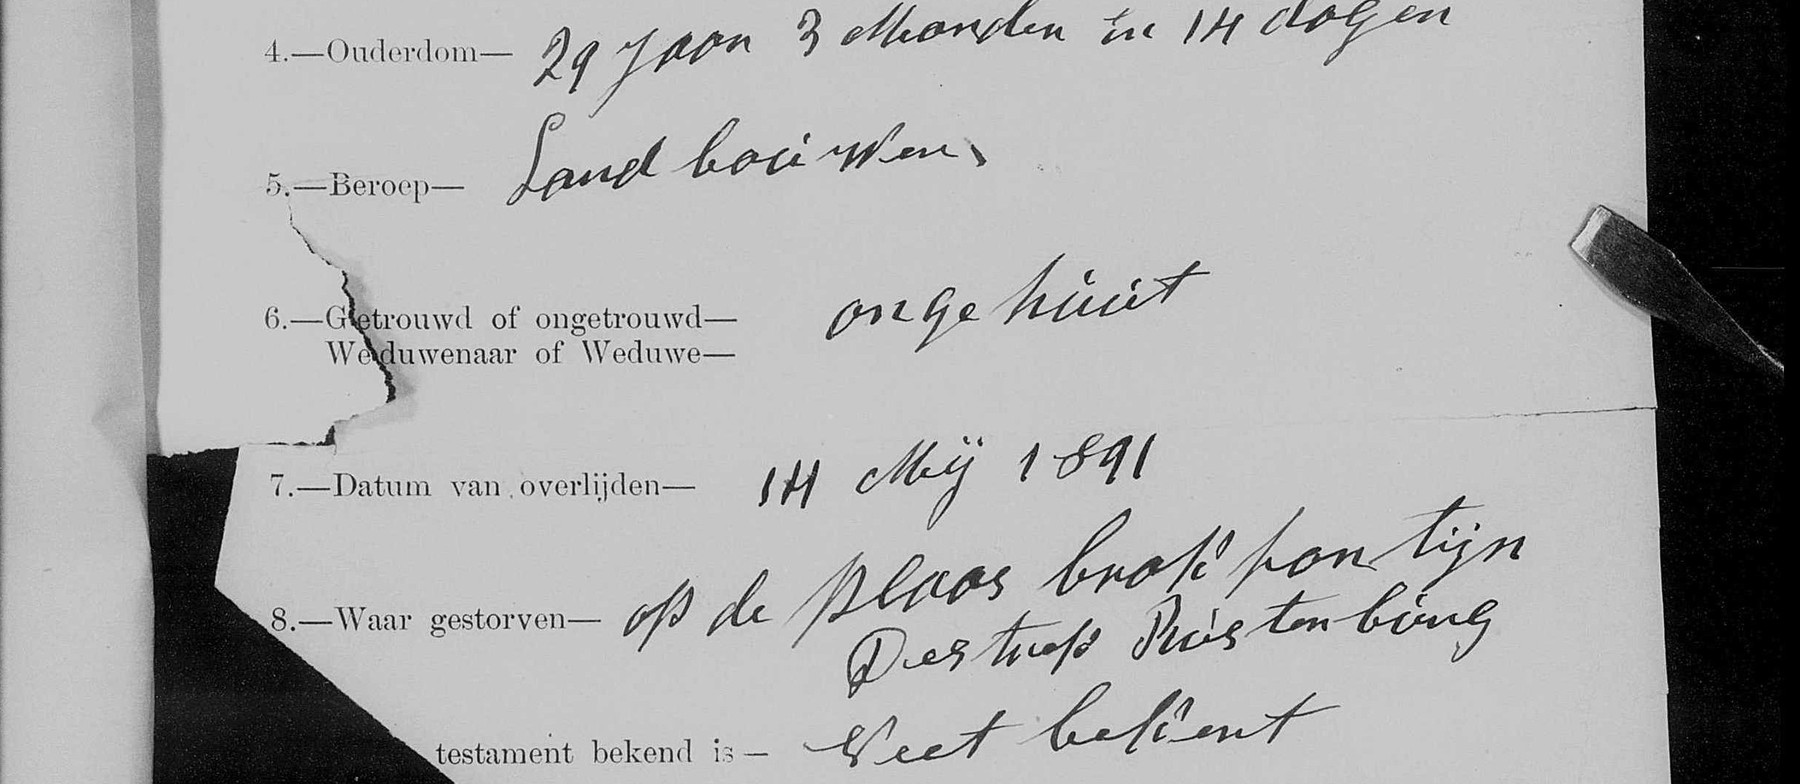 4.—Ouderdom— 29 Jaar 3 Maanden En 14 dagen
5.—Beroep— Land bouwer
6.—Getrouwd of ongetrouwd— ongehuut
Weduwenaar of Weduwe—
7.—Datum van overlijden— 14 Meij 1891
8.—Waar gestorven— op de plaas brak fontijn
Destrek Rustenburg
testament bekend is— Neet bekent